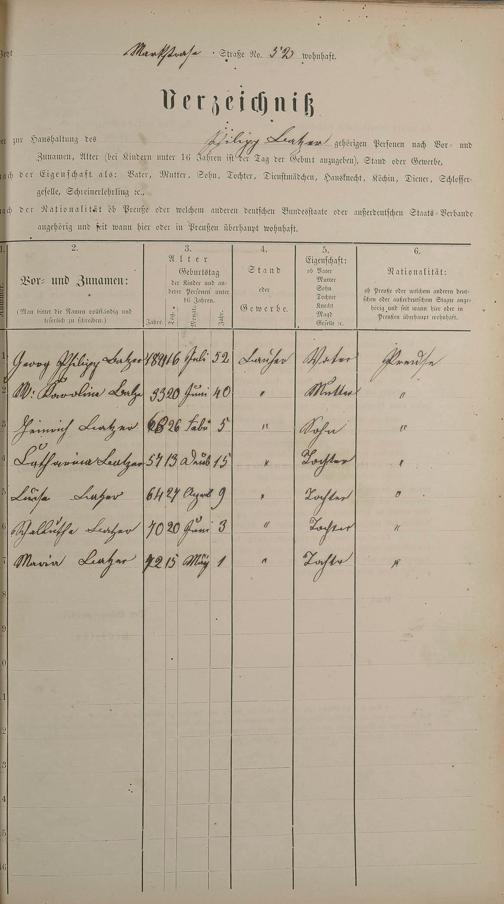 Jetzt Marktstrase Straße No. 52 wohnhaft.
Verzeichniß
der zur Haushaltung des Philipp Latzer gehörigen Personen nach Vor- und
Zunamen, Alter (bei Kindern unter 16 Jahren ist der Tag der Geburt anzugeben), Stand oder Gewerbe,
nach der Eigenschaft als: Vater, Mutter, Sohn, Tochter, Dienstmädchen, Hausknecht, Köchin, Diener, Schlosser-
geselle, Schreinerlehrling ꝛc.
nach der Nationalität ob Preuße oder welchem anderen deutschen Bundesstaate oder außerdeutschen Staats-Verbande
angehörig und seit wann hier oder in Preußen überhaupt wohnhaft.
1. 2. 3. 4. 5. 6.
Nummer. Vor- und Zunamen: (Man bittet die Namen vollständig und leserlich zu schreiben.) Alter Geburtstag der Kinder und anderer Personen unter 16 Jahren. Jahre. Tag. Monat. Jahr. Stand oder Gewerbe. Eigenschaft: ob Vater Mutter Sohn Tochter Knecht Magd Geselle ꝛc. Nationalität: ob Preuße oder welchem anderen deutschen oder außerdeutschen Staate angehörig und seit wann hier oder in Preußen überhaupt wohnhaft.
1 Georg Philipp Latzer 16 Juli 52 Vater Preuse
2 Karoline Latzer 33 20 Juni 40 " Mutter "
3 Heinrich Latzer 26 Febr 5 " Sohn "
4 Catharina Latzer 57 13 15 " Tochter "
5 Luise Latzer 64 27 April 9 " Tochter "
6 Latzer 70 20 Juni 3 " Tochter "
7 Maria Latzer 72 15 May 1 " Tochtr "
8
9
0
1
2
3
4
5
6